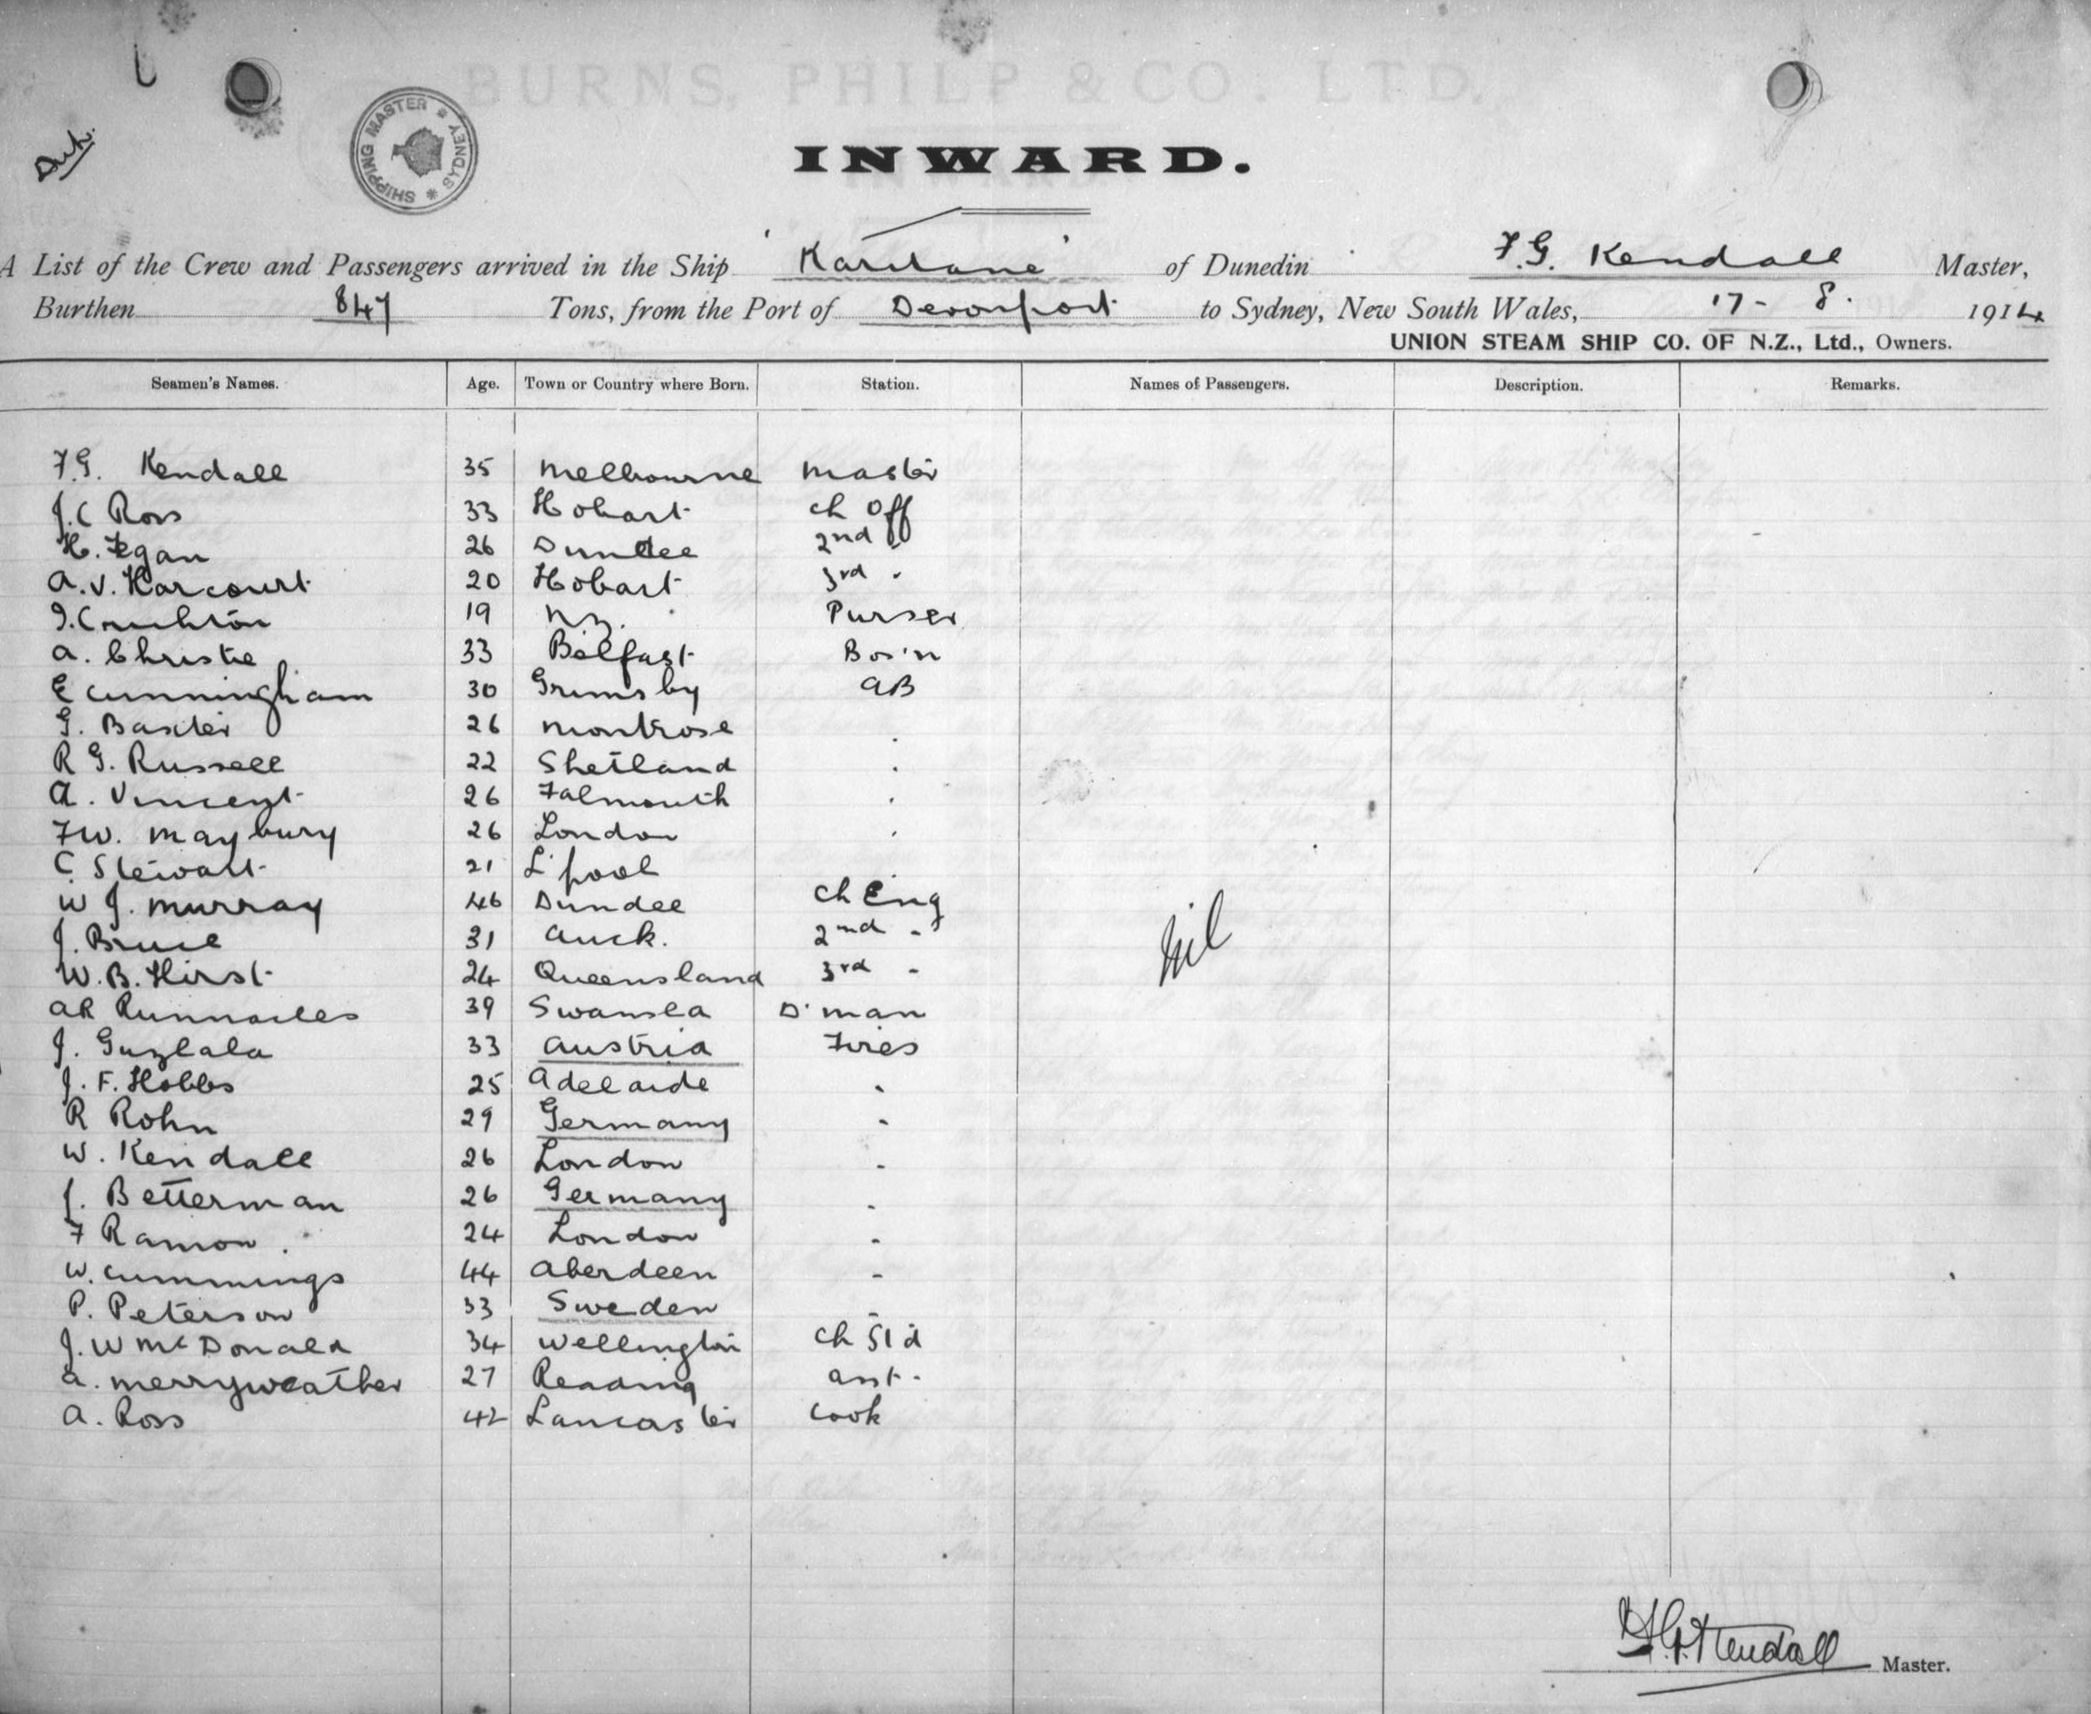 BURNS, PHILP & CO. LTD.
Dub.
SHIPPING MASTER * SYDNEY *
INWARD.
A List of the Crew and Passengers arrived in the Ship 'Karitane' of Dunedin F.G. Kendall Master,
Burthen 847 Tons, from the Port of Devonport to Sydney, New South Wales, 17 - 8. 1914
UNION STEAM SHIP CO. OF N.Z., Ltd., Owners.
Seamen's Names. Age. Town or Country where Born. Station. Names of Passengers. Description. Remarks.
F.G. Kendall 35 Melbourne Master
J.C Ross 33 Hobart Ch Off
H. Fegan 26 Dundee 2nd "
A.V. Harcourt 20 Hobart 3rd "
I. Crichton 19 N.Z. Purser
A. Christie 33 Belfast Bos'n
E Cunningham 30 Grimsby AB
G. Baxter 26 Montrose "
R G. Russell 22 Shetland "
A. Vincent 26 Falmouth "
F.W. Maybury 26 London "
C. Stewart 21 L'pool
W J. Murray 46 Dundee Ch Eng
J. Bruce 31 Auck. 2nd "
W.B. Hirst 24 Queensland 3rd "
Nil
AR Runnacles 39 Swansea D'man
J. Guzlala 33 Austria Fires
J. F. Hobbs 25 Adelaide "
R Rohn 29 Germany "
W. Kendall 26 London "
J. Betterman 26 Germany "
F Ramon. 24 London "
W. Cummings 44 Aberdeen "
P. Peterson 33 Sweden "
J. W McDonald 34 Wellington Ch Std
A. Merryweather 27 Reading Asst.
A. Ross 42 Lancaster Cook
F.G. Kendall Master.